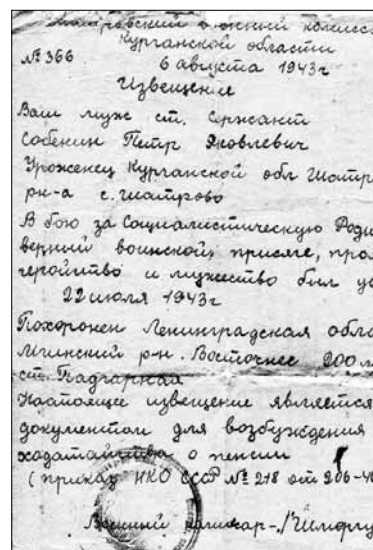 Шатровский военный комисса
Курганской области
№ 366 6 августа 1943г
Извещение
Ваш муж ст. Сержант
Собенин Петр Яковлевич
Уроженец Курганской обл Шатр
рн-а с. Шатрово
В бою за Социалистическую Роди
верный воинской присяге, проя
геройство и мужество был уб
22 июля 1943г
Похоронен Ленинградская обла
Мгинский р-н. Восточнее 200 м
ст. Падгарная
Настоящее извещение является
документом для возбуждения
ходатайства о пенсии
(приказ НКО СССР № 218 от
Военный комиссар-